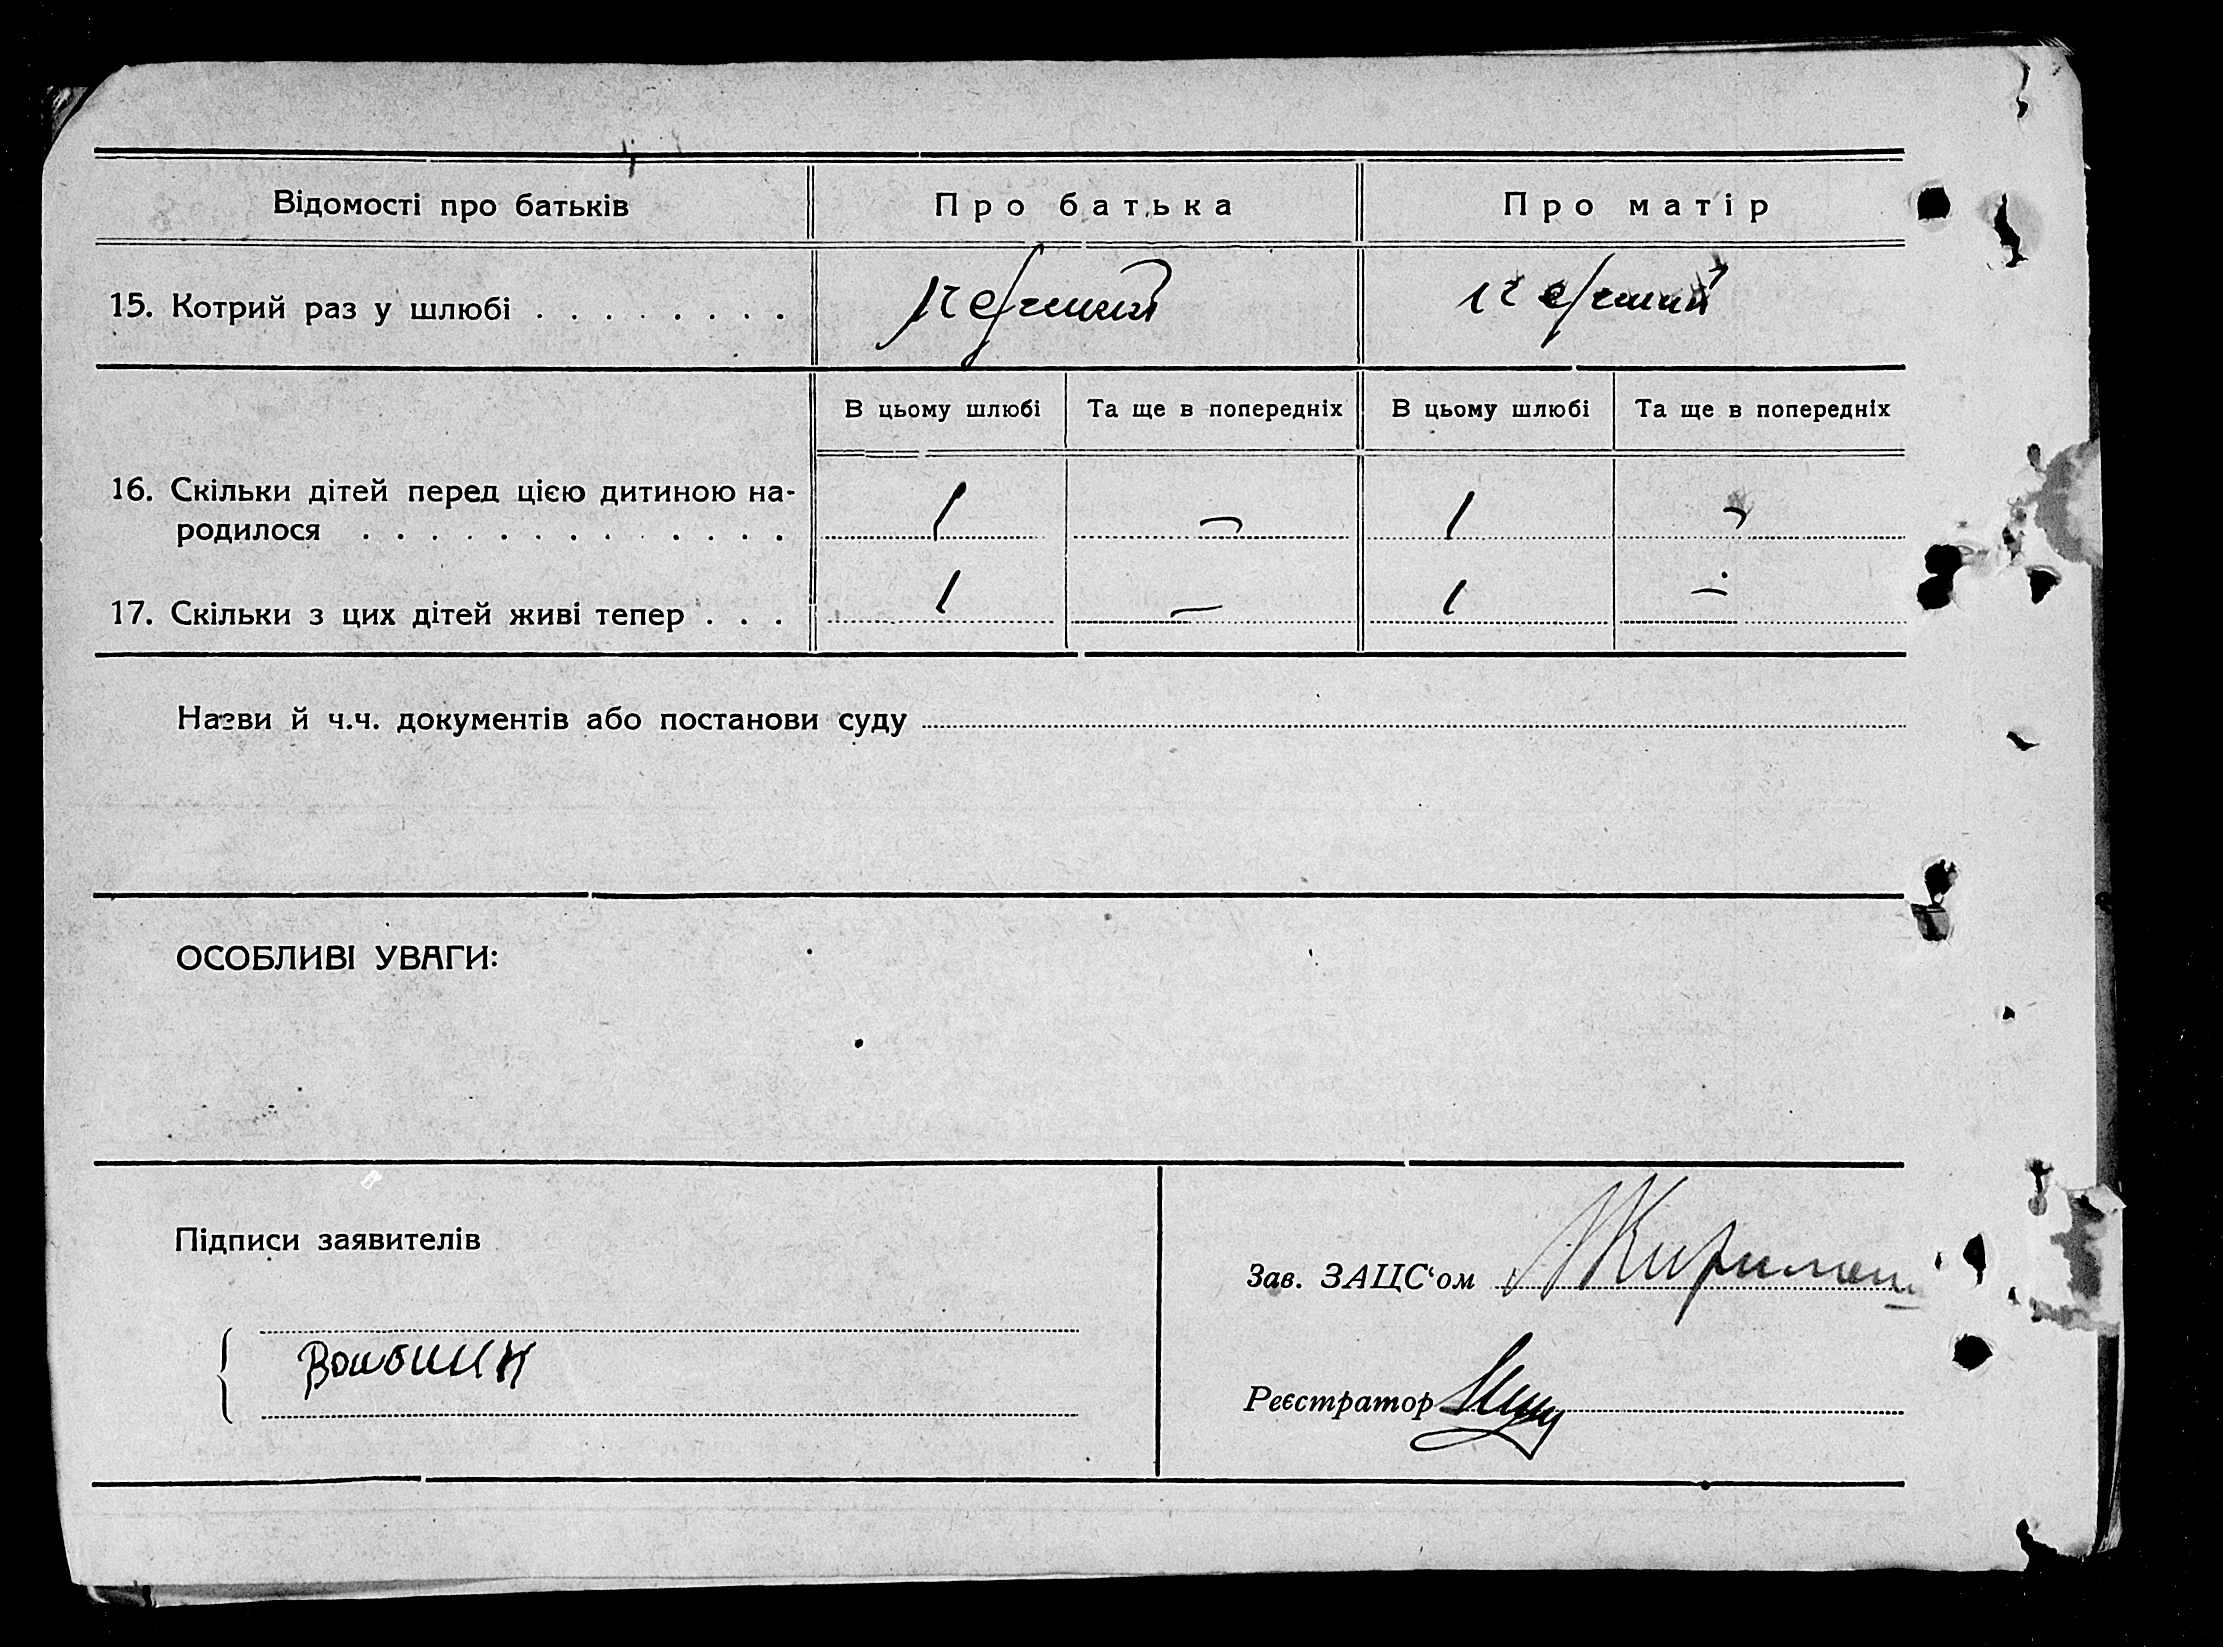 Відомості про батьків Про батька Про матір
15. Котрий раз у шлюбі . . . . . . . . перший перший
В цьому шлюбі Та ще в попередніх В цьому шлюбі Та ще в попередніх
16. Скільки дітей перед цією дитиною на-
родилося . . . . . . . . . . . . . 1 — 1 —
17. Скільки з цих дітей живі тепер . . . 1 — 1 —
Назви й ч.ч. документів або постанови суду
ОСОБЛИВІ УВАГИ:
Підписи заявителів
Зав. ЗАЦС‘ом
Реєстратор